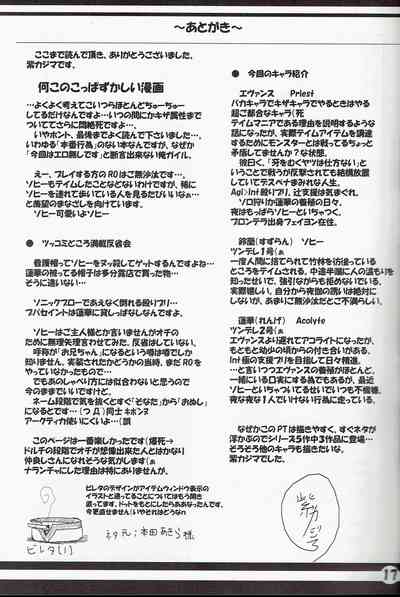 ～あとがき～
ここまで読んで頂き、ありがとうございました。
紫カジマです。
何このこっぱずかしい漫画
…よくよく考えてこいつらほとんどちゅーちゅー
してるだけなんですよ…いつの間にかキザ属性まで
ついててさらに悶絶死ですよ…。
いやホント、最後までよく読んで下さいました…
いわゆる「本番行為」のない本なんですが、なぜか
「今回はエロ無しです」と断言出来ない俺ガイル。
えー、プレイする方のROはご無沙汰です…
ソヒーもテイムしたことなどないわけですが、稀に
ソヒーを連れて歩いている人を見るたびいいなぁ…
と羨望のまなざしを向けています。
ソヒー可愛いよソヒー
● ツッコミどころ満載反省会
看護帽ってソヒーをヌッ殺してゲットするんですよね…
蓮華の被ってる帽子は多分露店で買った物…
そうに違いない…
ソニックブローであえなく倒れる殴りプリ…
プバセイントは蓮華に貸しっぱなしなんですよ。
ソヒーはご主人様とか言いませんがオチの
ために無理矢理言わせてみた。反省はしていない。
呼称が「お兄ちゃん」になるという噂は噂でしか
知りません。実装されたかどうかの当時、まだROを
やっていなかったもので…
でもあのしゃべり方には似合わないと思うので
今のままでいいですけど。
ネーム段階で気を抜くとすぐ「そなた」から「おぬし」
になるとです…（つД）同士キボンヌ
アークティカ使いにくいよ…（誤
このページは一番楽しかったです（爆死→
ドルチの段階でオチが想像出来た人とはかなり
仲良しさんになれそうな気がします（ぁ
ナランチャにした理由は特にありませんが。
ビレタのデザインがアイテムウィンドウ表示の
イラストと違ってることについてはもう開き
直ってます。ドットをもとにしたらああなったんです。
今更直せません（いやそれはどうなn
ビレタ(!)
ネタ元；本田あきら様
● 今回のキャラ紹介
エヴァンス　Priest
バカキャラでキザキャラでやるときはやる
超ご都合なキャラ（死
テイムマニアである理由を説明するような
話になったが、実際テイムアイテムを調達
するためにモンスターとは戦ってるちょっと
矛盾してませんか？な状態。
彼曰く、「牙をむくヤツは仕方ない」と
いうことで戦うが反撃されても結構放置
していてデスペナまみれな人生。
Agi>Int殴りプリ、辻支援は気まぐれ。
ソロ狩りか蓮華の養殖の日々。
夜はもっぱらソヒーといちゃつく。
プロンテラ出身フェイヨン在住。
鈴蘭(すずらん)　ソヒー
ツンデレ1号(ぁ
一度人間に捨てられて竹林を彷徨っている
ところをテイムされる。中途半端に人の温もりを
知ったせいで、強引ながらも拒めないでいる。
実際嬉しい。自分から夜伽の誘いは絶対に
しないが、あまりご無沙汰だとご不満らしい。
蓮華(れんげ)　Acolyte
ツンデレ2号(ぁ
エヴァンスより遅れてアコライトになったが、
もともと幼少の頃からの付き合いがある。
Int極の支援プリを目指して日々精進。
…と言いつつエヴァンスの養殖がほとんど。
一緒にいる口実にする為でもあるが、最近
ソヒーといちゃついてるせいでいつも不機嫌。
夜な夜な1人でいけない行為に走っている。
なぜかこのPTは描きやすく、すぐネタが
浮かぶのでシリーズ5作中3作品に登場…
そろそろ他のキャラも描きたいな。
紫カジマでした。
17